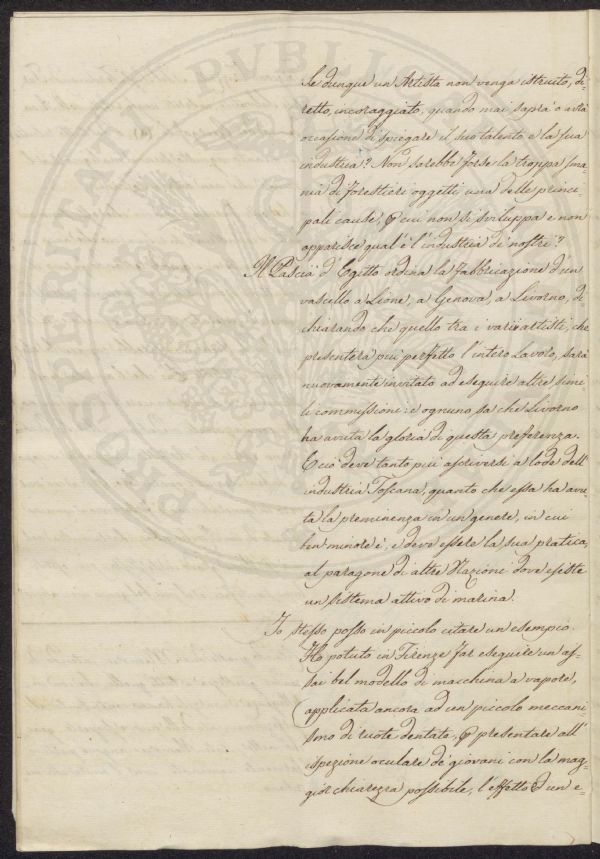 Se dunque un Artista non venga istruito, di-
retto, incoraggiato, quando mai saprà o avrà
occasione di spiegare il suo talento e la sua
industria? Non sarebbe forse la troppa sma-
nia di forestieri oggetti una delle princi-
pali cause, cui non si sviluppa e non
apparisce qual'è l'industria de' nostri?
Il Pascià d'Egitto ordina la fabbricazione d'un
vascello a Lione, a Genova, a Livorno, di
chiarando che quello tra i varii artisti, che
presenterà più perfetto l'intero Lavoro, sarà
nuovamente invitato ad eseguire altre simi-
li commissioni: e ognuno sa che Livorno
ha avuta la gloria di questa preferenza.
E ciò deve tanto più ascriversi a lode dell'
industria Toscana, quanto che essa ha avu-
ta la preminenza in un genere, in cui
ben minore è, e deve essere la sua pratica,
al paragone di altre Nazioni dove esiste
un sistema attivo di marina.
Io stesso posso in piccolo citare un esempio.
Ho potuto in Firenze far eseguire un as-
sai bel modello di macchina a vapore,
applicata ancora ad un piccolo meccani
smo di ruote dentate, presentare all'
ispezione oculare de' giovani con la mag-
gior chiarezza possibile, l'effetto d'un e-